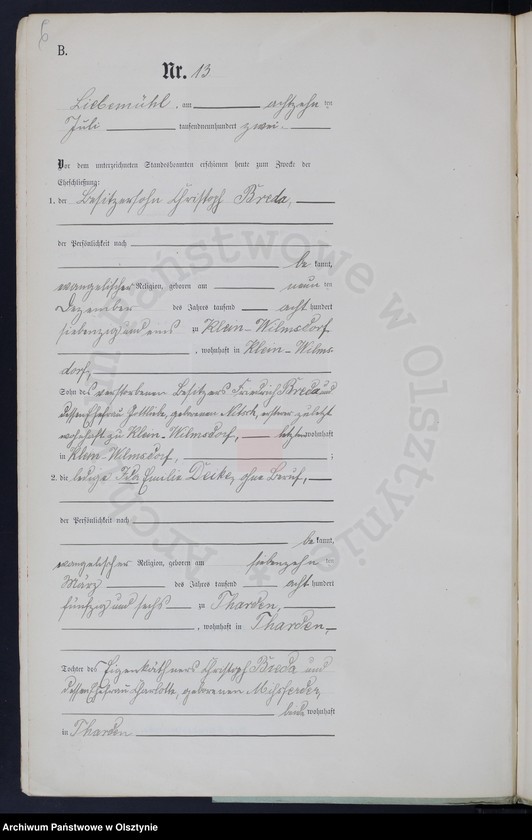 B.
Nr. 13
Liebemühl, am achtzehn ten
Juli tausendneunhundert zwei.
Vor dem unterzeichneten Standesbeamten erschienen heute zum Zwecke der
Eheschließung:
1. der Besitzersohn Christoph Breda,
der Persönlichkeit nach
be kannt,
evangelischer Religion, geboren am neun ten
Dezember des Jahres tausend acht hundert
siebenzig und eins zu Klein-Wilmsdorf
, wohnhaft in Klein-Wilms
dorf,
Sohn des verstorbenen Besitzers Friedrich Breda und
dessen Ehefrau Gottliebe, geborenen ersterer zuletzt
wohnhaft zu Klein-Wilmsdorf, letztere wohnhaft
in Klein-Wilmsdorf, ;
2. die ledige Ida Emilie ohne Beruf,
der Persönlichkeit nach
be kannt,
evangelischer Religion, geboren am siebenzehn ten
März des Jahres tausend acht hundert
fünfzig und sechs zu Tharden,
, wohnhaft in Tharden,
Tochter des Eigenkäthners Christoph Breda und
dessen Ehefrau Charlotte, geborenen
beide wohnhaft
in Tharden
Archiwum Państwowe w Olsztynie
Archiwum Państwowe w Olsztynie